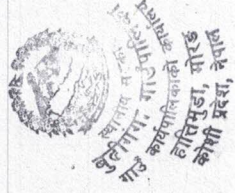 बुढीगंगा गाउँपालिका
गाउँ कार्यपालिकाको कार्यालय
हात्तिमुडा, मोरङ
कोशी प्रदेश, नेपाल